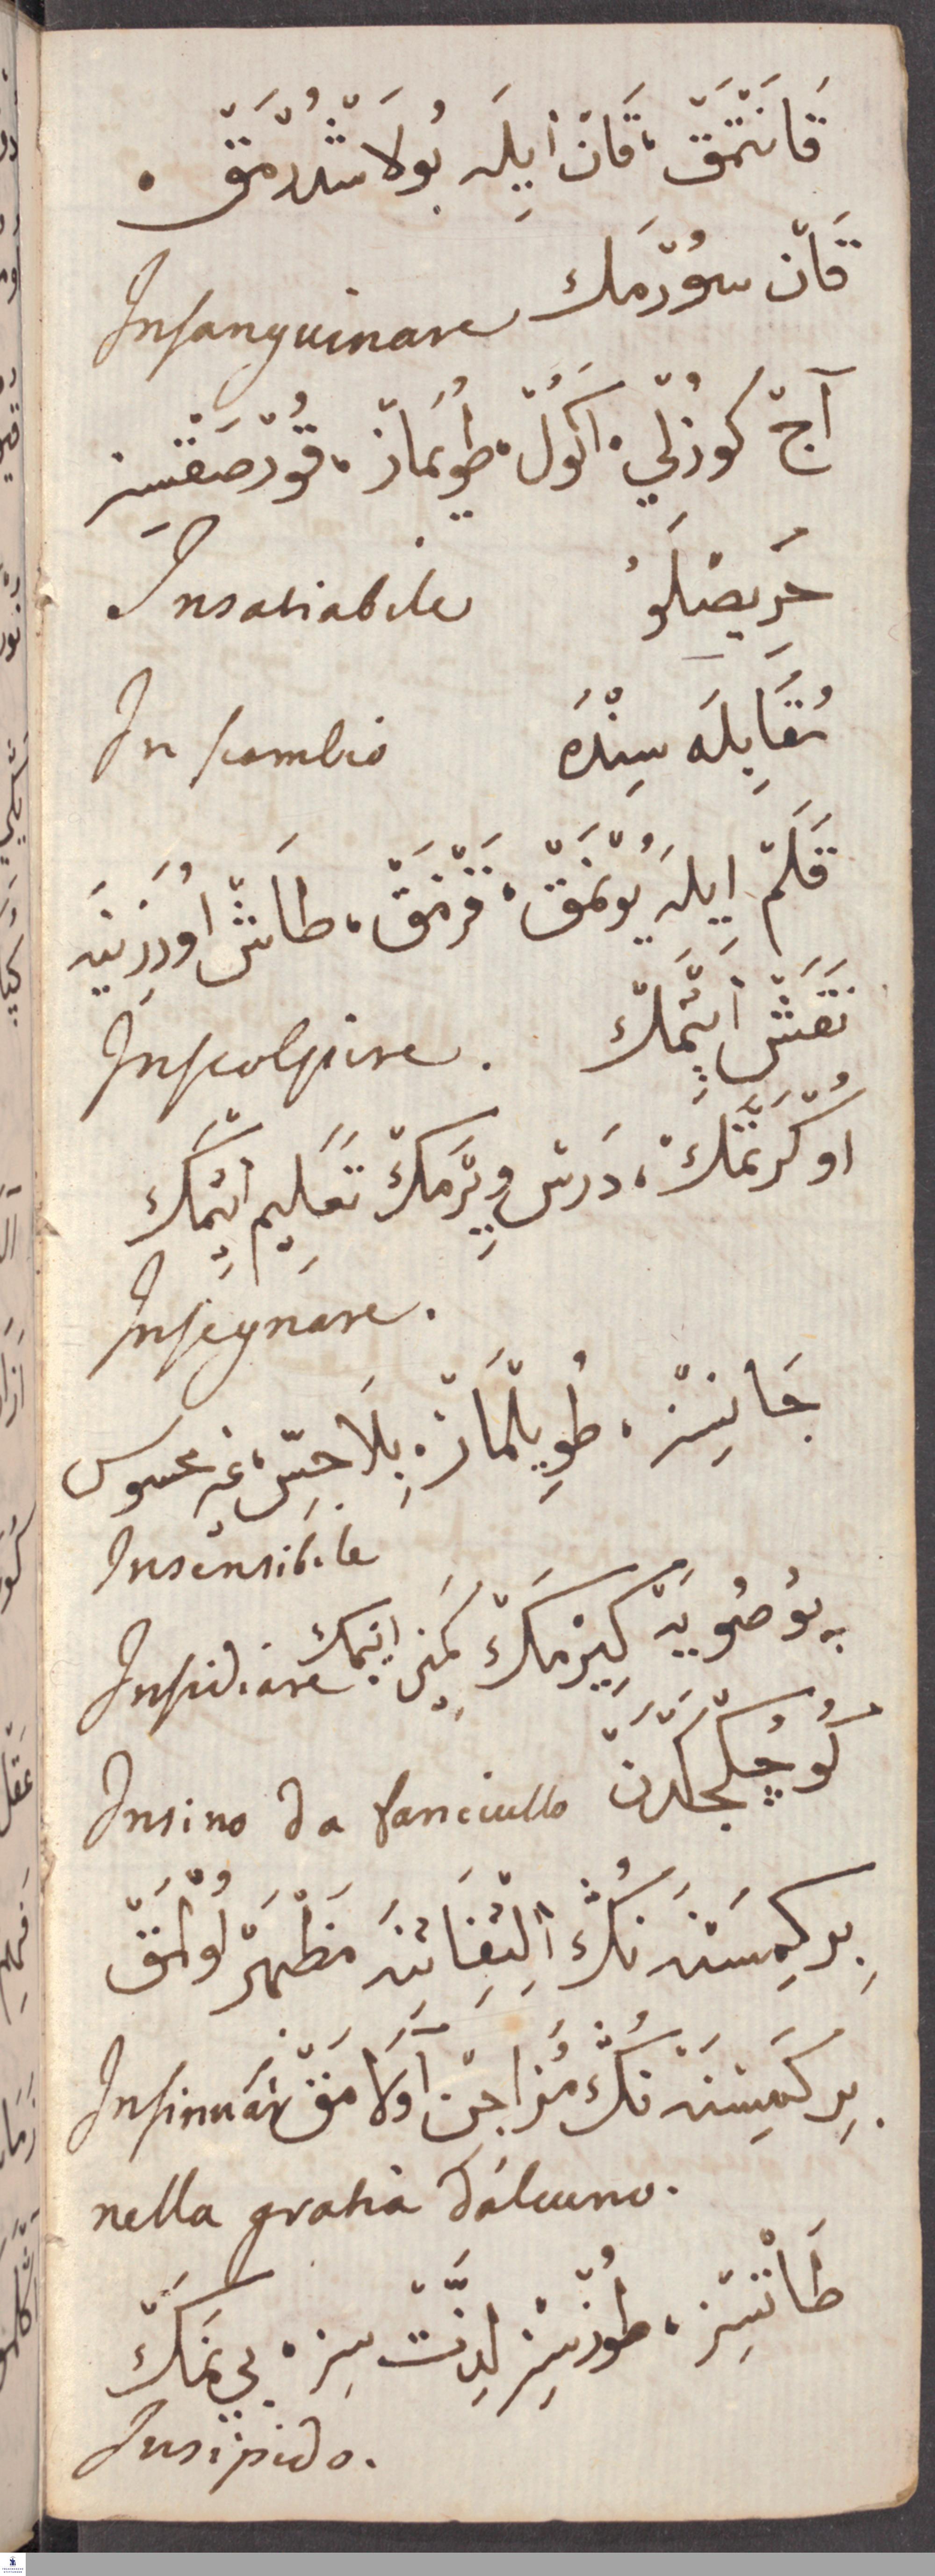 قَانَتْمَقْ، قَانْ ايِلَه بُولَاشْدُرْمَقْ .
قَانْ سوُرْمَك Insanguinare
آجْ كوُزْلِي، اكَوُلْ، طوُيْمَازْ، قوُرْصَقْسِز
حَرِيصْلوُ Insatiabile
مُقَابِلَه سِنْدَه In scambio
قَلَمْ اِيلَه يوُنْمَقْ، قَزْمَقْ، طَاشْ اوُزَرِينَه
نَقَشْ ايِتْمَكْ Inscolpire.
اوُكْرَتْمَكْ، دَرسْ وِيرْمَكْ تَعَلِيم ايِتْمَك
Insegnare.
جَانْسِزْ، طُويِلْمَازْ، بِلَا حِسّ، غير محسوس
Insensibile
پوُصُويَه كِيرْمَكْ كَمِين ايتمك Insidiare
كُوچُكلِكْدَنْ Insino da fanciullo
بِر كِمِسَنه نكُ الْتِفَاتنَه مَظْهَرْ اوُلْمَقْ
بِر كَمِسَنَه نكُ مَزاجِنْ اَوْلَامَقْ Insinuar
nella gratia d'alcuno.
طَاتْسِزْ، طوُزْسِزْ لِذَّتْ سِز، بي نمَكْ
Insipido.